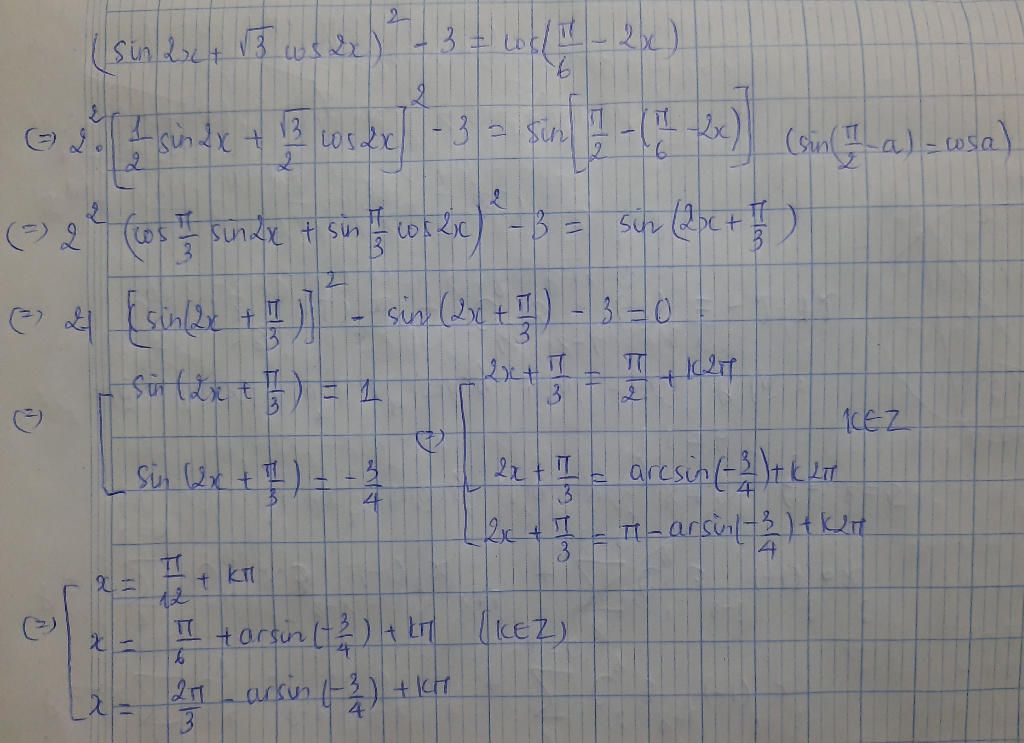 (sin 2x + √3 cos 2x)² - 3 = cos(π/6 - 2x)
(=) 2². [1/2 sin 2x + √3/2 cos 2x]² - 3 = sin[π/2 - (π/6 - 2x)] (sin(π/2 - a) = cos a)
(=) 2² (cos π/3 sin 2x + sin π/3 cos 2x)² - 3 = sin (2x + π/3)
(=) 4 [sin(2x + π/3)]² - sin (2x + π/3) - 3 = 0
(=) [ sin (2x + π/3) = 1 (=) [ 2x + π/3 = π/2 + k2π K∈Z
sin (2x + π/3) = -3/4 2x + π/3 = arcsin(-3/4) + k2π
2x + π/3 = π - arsin(-3/4) + k2π
(=) [ x = π/12 + kπ
x = π/6 + arsin(-3/4) + kπ (K∈Z)
x = 2π/3 - arsin(-3/4) + kπ